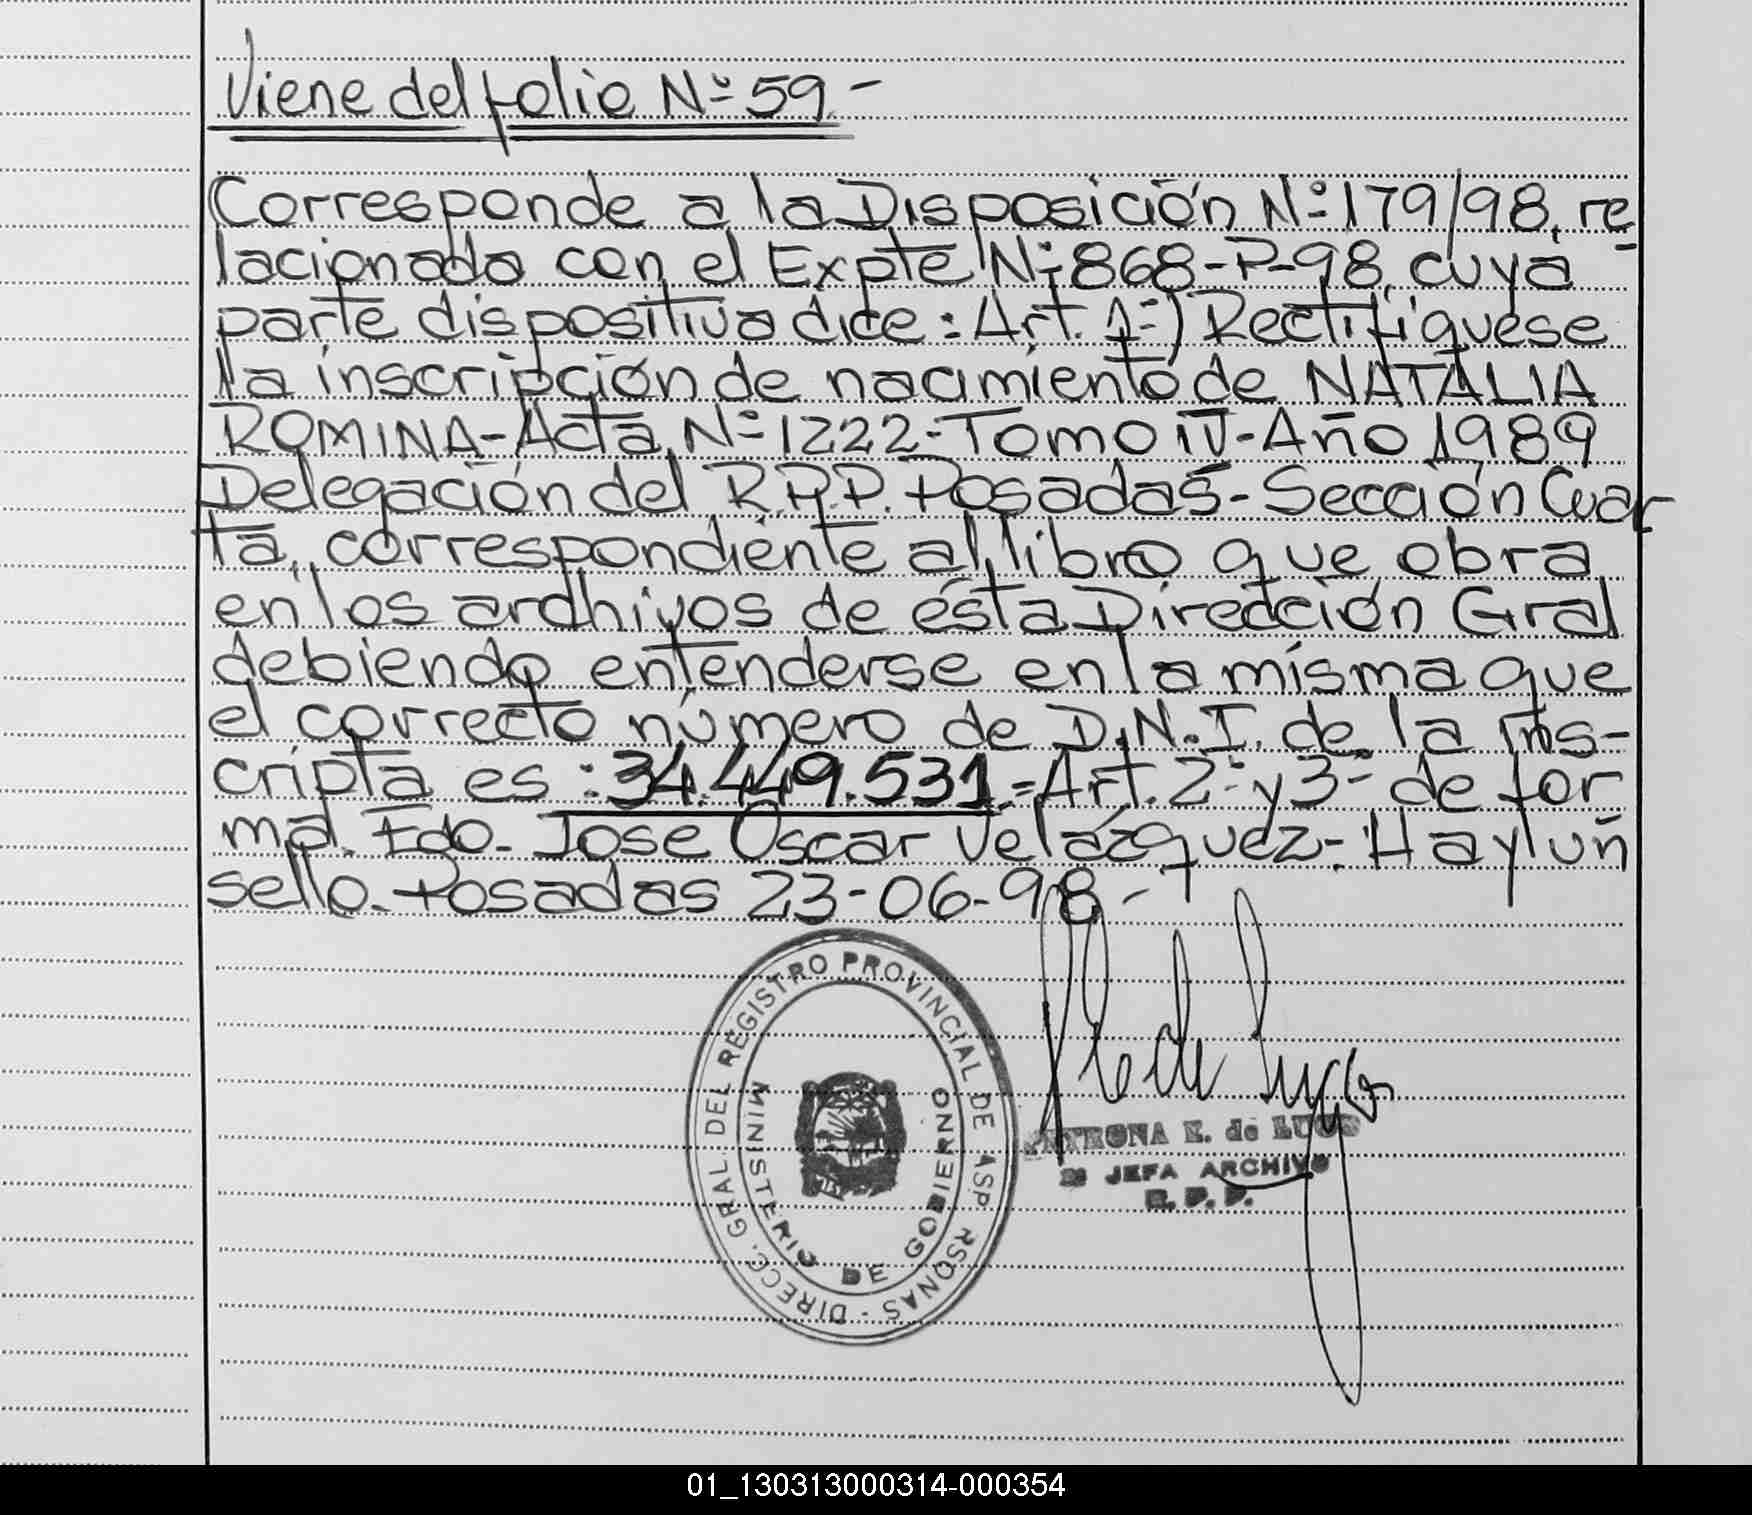 Viene del folio Nº 59.-
Corresponde a la Disposición Nº 179/98, re
lacionada con el Expte Nº 868-P-98, cuya
parte dispositiva dice: Art. 1º) Rectifíquese
la inscripción de nacimiento de NATALIA
ROMINA-Acta Nº 1222-Tomo IV-Año 1989
Delegación del R.P.P. Posadas-Sección Cuar
ta, correspondiente al libro que obra
en los archivos de ésta Dirección Gral
debiendo entenderse en la misma que
el correcto número de D.N.I. de la ins-
cripta es: 34.449.531.=Art. 2º y 3º de for
ma. Fdo. Jose Oscar Velázquez-Hay un
sello. Posadas 23-06-98-
DIRECC. GRAL DEL REGISTRO PROVINCIAL DE ASP RSONAS -
MINISTERIO DE GOBIERNO
PETRONA E. de LUGO
JEFA ARCHIVO
R. P. P.
01_130313000314-000354